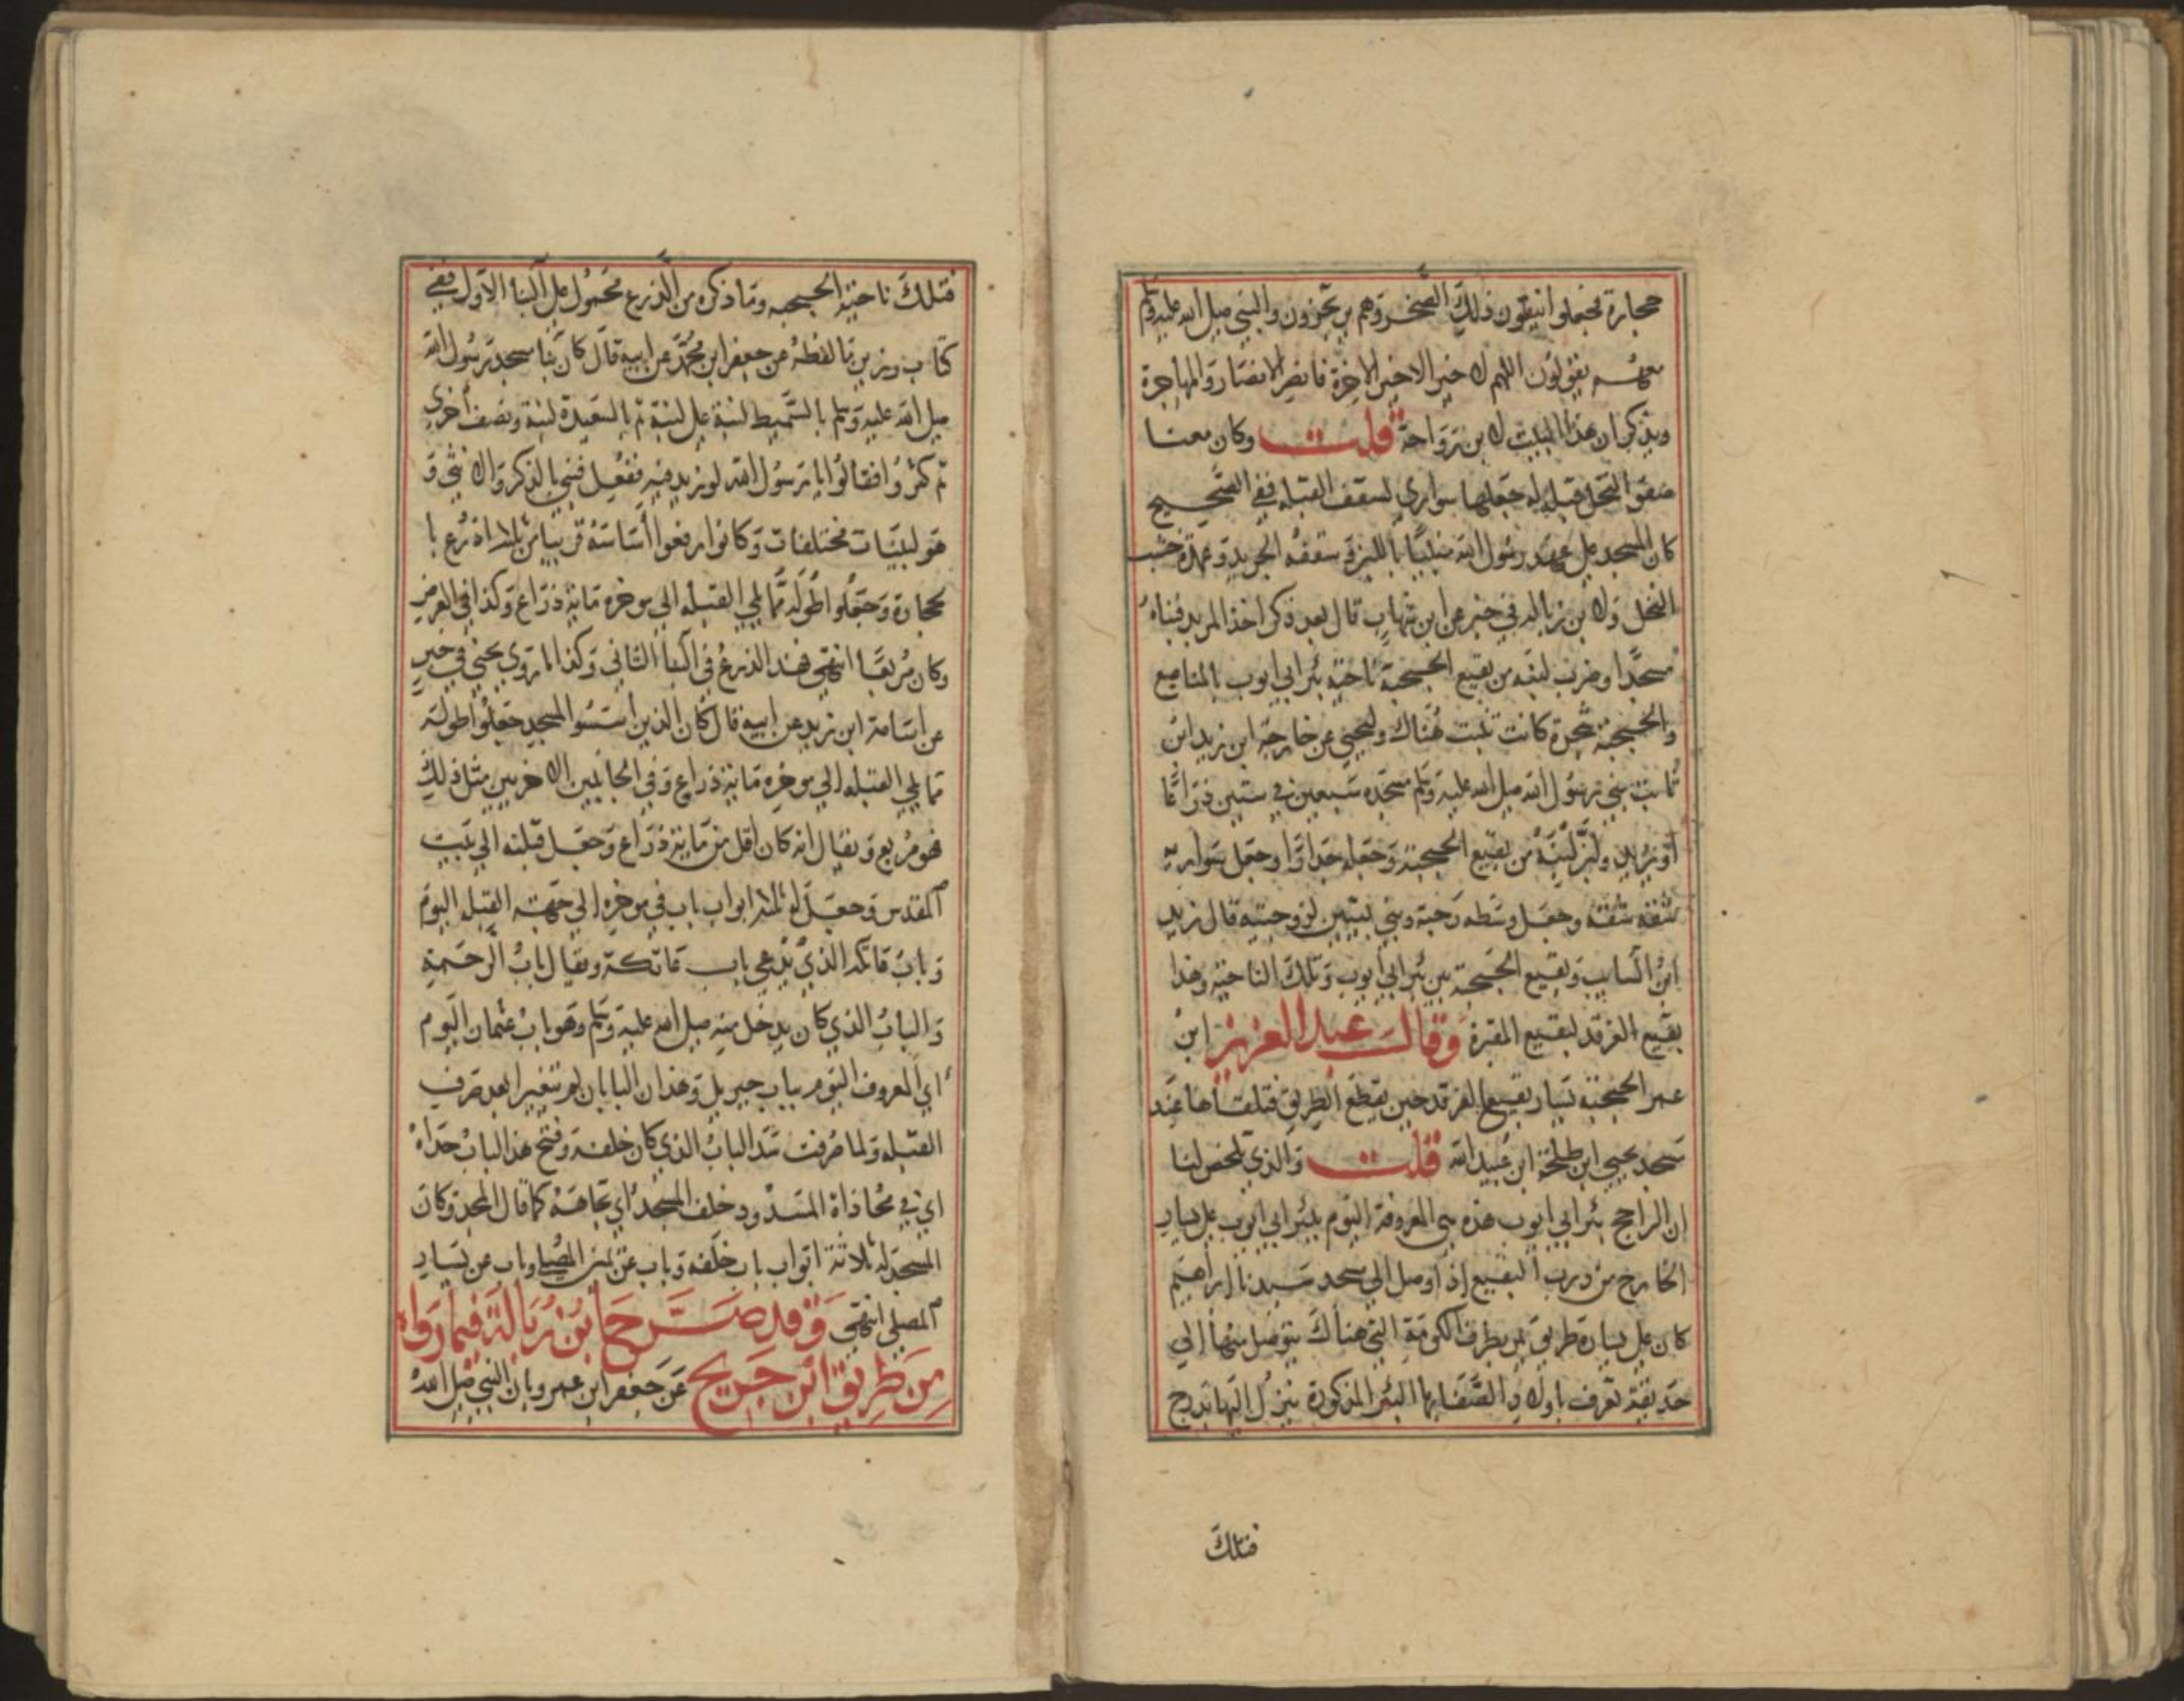 حجارة فجعلوا ينقلون ذلك الصخر وهم يرتجزون والنبي صلى الله عليه وسلم
معهم يقولون اللهم لا خير الا خير الاخرة فانصر الانصار والمهاجرة
ويذكر ان هذا البيت لابن رواحة قلت وكان معنا
صفوا النخل قبله له جعلها سواري لسقف القبله ففي الصحيح
كان المسجد على عهد رسول الله مبنيا باللبن وسقفه الجريد وعمده خشب
النخل ولابن زباله في خبر عن ابن شهاب قال بعد ذكر اخذ المربد فبناه
مسجدا وضرب لبنه من بقيع الخبجبة ناحية بئر ابي ايوب بالمناصع
والخبجبة شجرة كانت تنبت هناك وليحيى عن خارجة ابن زيد ابن
ثابت بنى رسول الله صلى الله عليه وسلم مسجده سبعين في ستين ذراعا
او يزيد ولبن لبنه من بقيع الخبجبة وجعله جدارا وجعل سواريه
شقة شقة وجعل وسطه رحبة وبني بيتين لزوجتيه قال زيد
ابن السايب وبقيع الخبجبة بين بئر ابي ايوب وتلك الناحية وهذا
بقيع الغرقد لبقيع المقبرة وقال عبد العزيز ابن
عمر الخبجبة يسار بقيع الغرقد حين يقطع الطريق فتلقاها عند
مسجد يحيى ابن طلحة ابن عبيد الله قلت والذي تلخص لنا
ان الراجح بئر ابي ايوب هذه هي المعروفة اليوم ببئر ابي ايوب على يسار
الخارج من درب البقيع اذا وصل الى مسجد سيدنا ابراهيم
كان على يساره طريق من بطرف الكومة التي هناك يتوصل منها الى
حديقة تعرف باولاد الصفا بها البئر المذكورة ينزل اليها بدرج
فتلك
فتلك ناحية الخبجبه وما ذكره من الذرع محمول على البنا الاول ففي
كتاب رزين ما لفظه عن جعفر ابن محمد عن ابيه قال كان بنا مسجد رسول الله
صلى الله عليه وسلم بالسميط لبنة على لبنة ثم بالسعيدة لبنة ونصف اخرى
ثم كثروا فقالوا يا رسول الله لو زيد فيه ففعل فبني بالذكر والانثى و
هو لبنتان مختلفتان وكانوا رفعوا اساسه قريبا من ثلاثة اذرع با
لحجارة وجعلوا طوله مما يلي القبله الى موخره ماية ذراع وكذا في العرض
وكان مربعا انتهى فهذا الذرع في البنا الثاني وكذا ما روى يحيى في خبر
عن اسامة ابن زيد عن ابيه قال كان الذين اسسوا المسجد جعلوا طوله
مما يلي القبله الى موخره ماية ذراع وفي الجانبين الاخريين مثل ذلك
فهو مربع ويقال انه كان اقل من ماية ذراع وجعل قبلته الى بيت
المقدس وجعل له ثلاثة ابواب باب في موخره الى جهة القبله اليوم
وباب عاتكه الذي يدعى باب عاتكة ويقال باب الرحمة
والباب الذي كان يدخل منه صلى الله عليه وسلم وهو باب عثمان اليوم
اي المعروف اليوم بباب جبريل وهذان البابان لم تتغيرا بعد صرف
القبله ولما صرفت سد الباب الذي كان خلفه وفتح هذا الباب حذاه
اي في محاذاة المسدود خلف المسجد اي تجاهه كما قال المجد وكان
المسجد له ثلاثة ابواب باب خلفه وباب عن يمين المصلى وباب عن يسار
المصلي انتهى وقد صرح ابن زبالة فيما رواه
من طريق ابن جريج عن جعفر ابن عمرو بان النبي صلى الله